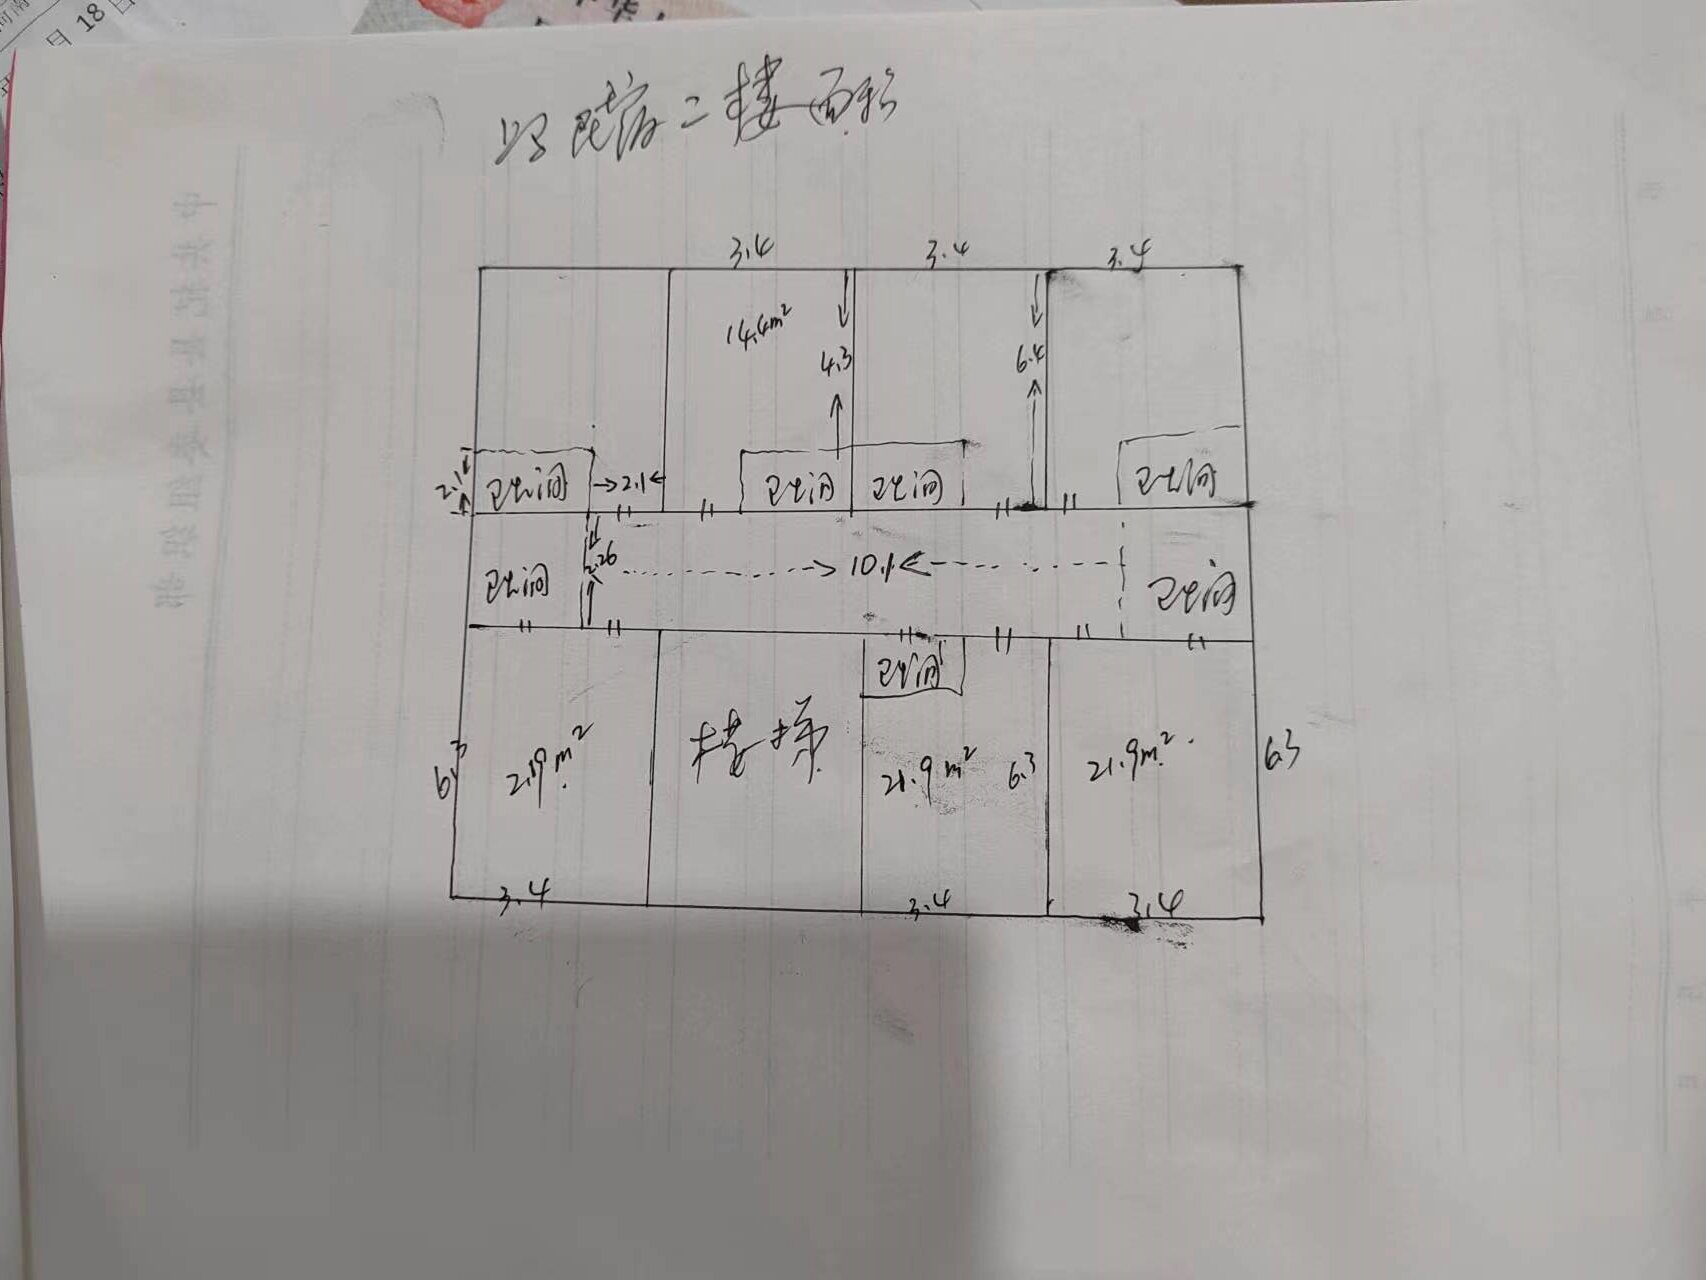 二楼面积
3.4 3.4 3.4
14.4m²
4.3 6.4
2.1 卫生间 2.1 卫生间 卫生间 卫生间
卫生间 2.26 10.1 卫生间
卫生间
6.3 楼梯 21.9m² 6.3 21.9m² 6.3
3.4 3.4 3.4
18日